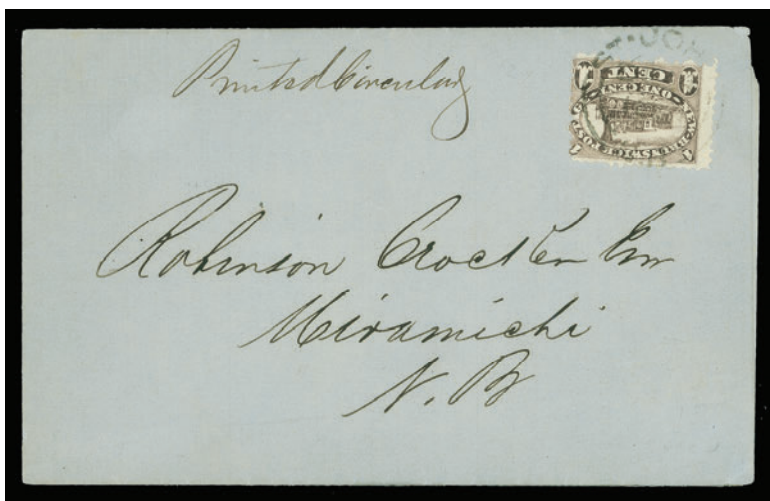 Printed Circular
ST. JOH
NEW-BRUNSWICK POSTAGE
ONE CENT
1 CENT 1
Robinson Crocker Esq
Miramichi
N. B